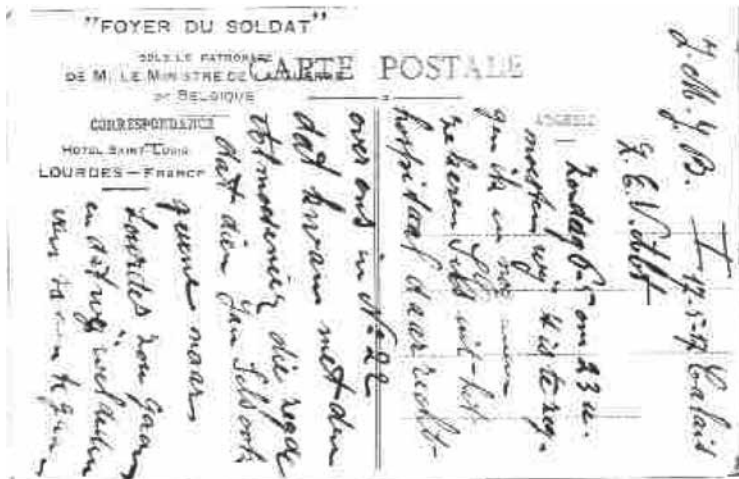 "FOYER DU SOLDAT"
SOUS LE PATRONAGE
DE M. LE MINISTRE DE LA GUERRE
DE BELGIQUE
CARTE POSTALE
CORRESPONDANCE
HOTEL SAINT-LOUIS
LOURDES — FRANCE
J. M. J. B. I 17-5-17 Calais
Z. E. V. Abt
Zondag 6-5 om 23 u.
moesten wij
gen ik en nog
zekeren Sels uit het
hospitaal daar recht-
over ons in No 22
dat kwam met den
die zegde
dat dien Jan
geerne naar
Lourdes zou gaan
en dat wij wilden